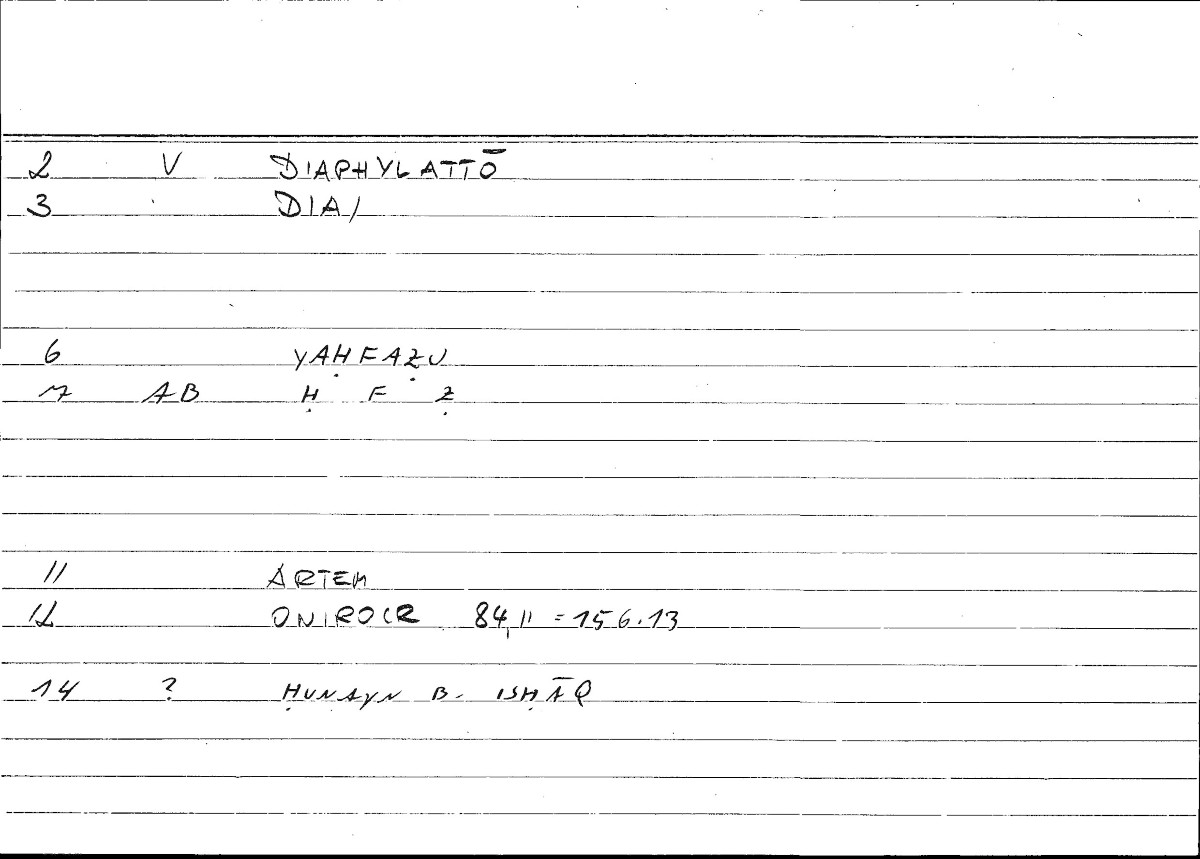 2 V DIAPHYLATTŌ
3 DIA/
6 YAḤFAẒU
7 AB Ḥ F Ẓ
11 ARTEM
12 ONIROCR 84,11 = 156.13
14 ? ḤUNAYN B. ISḤĀQ